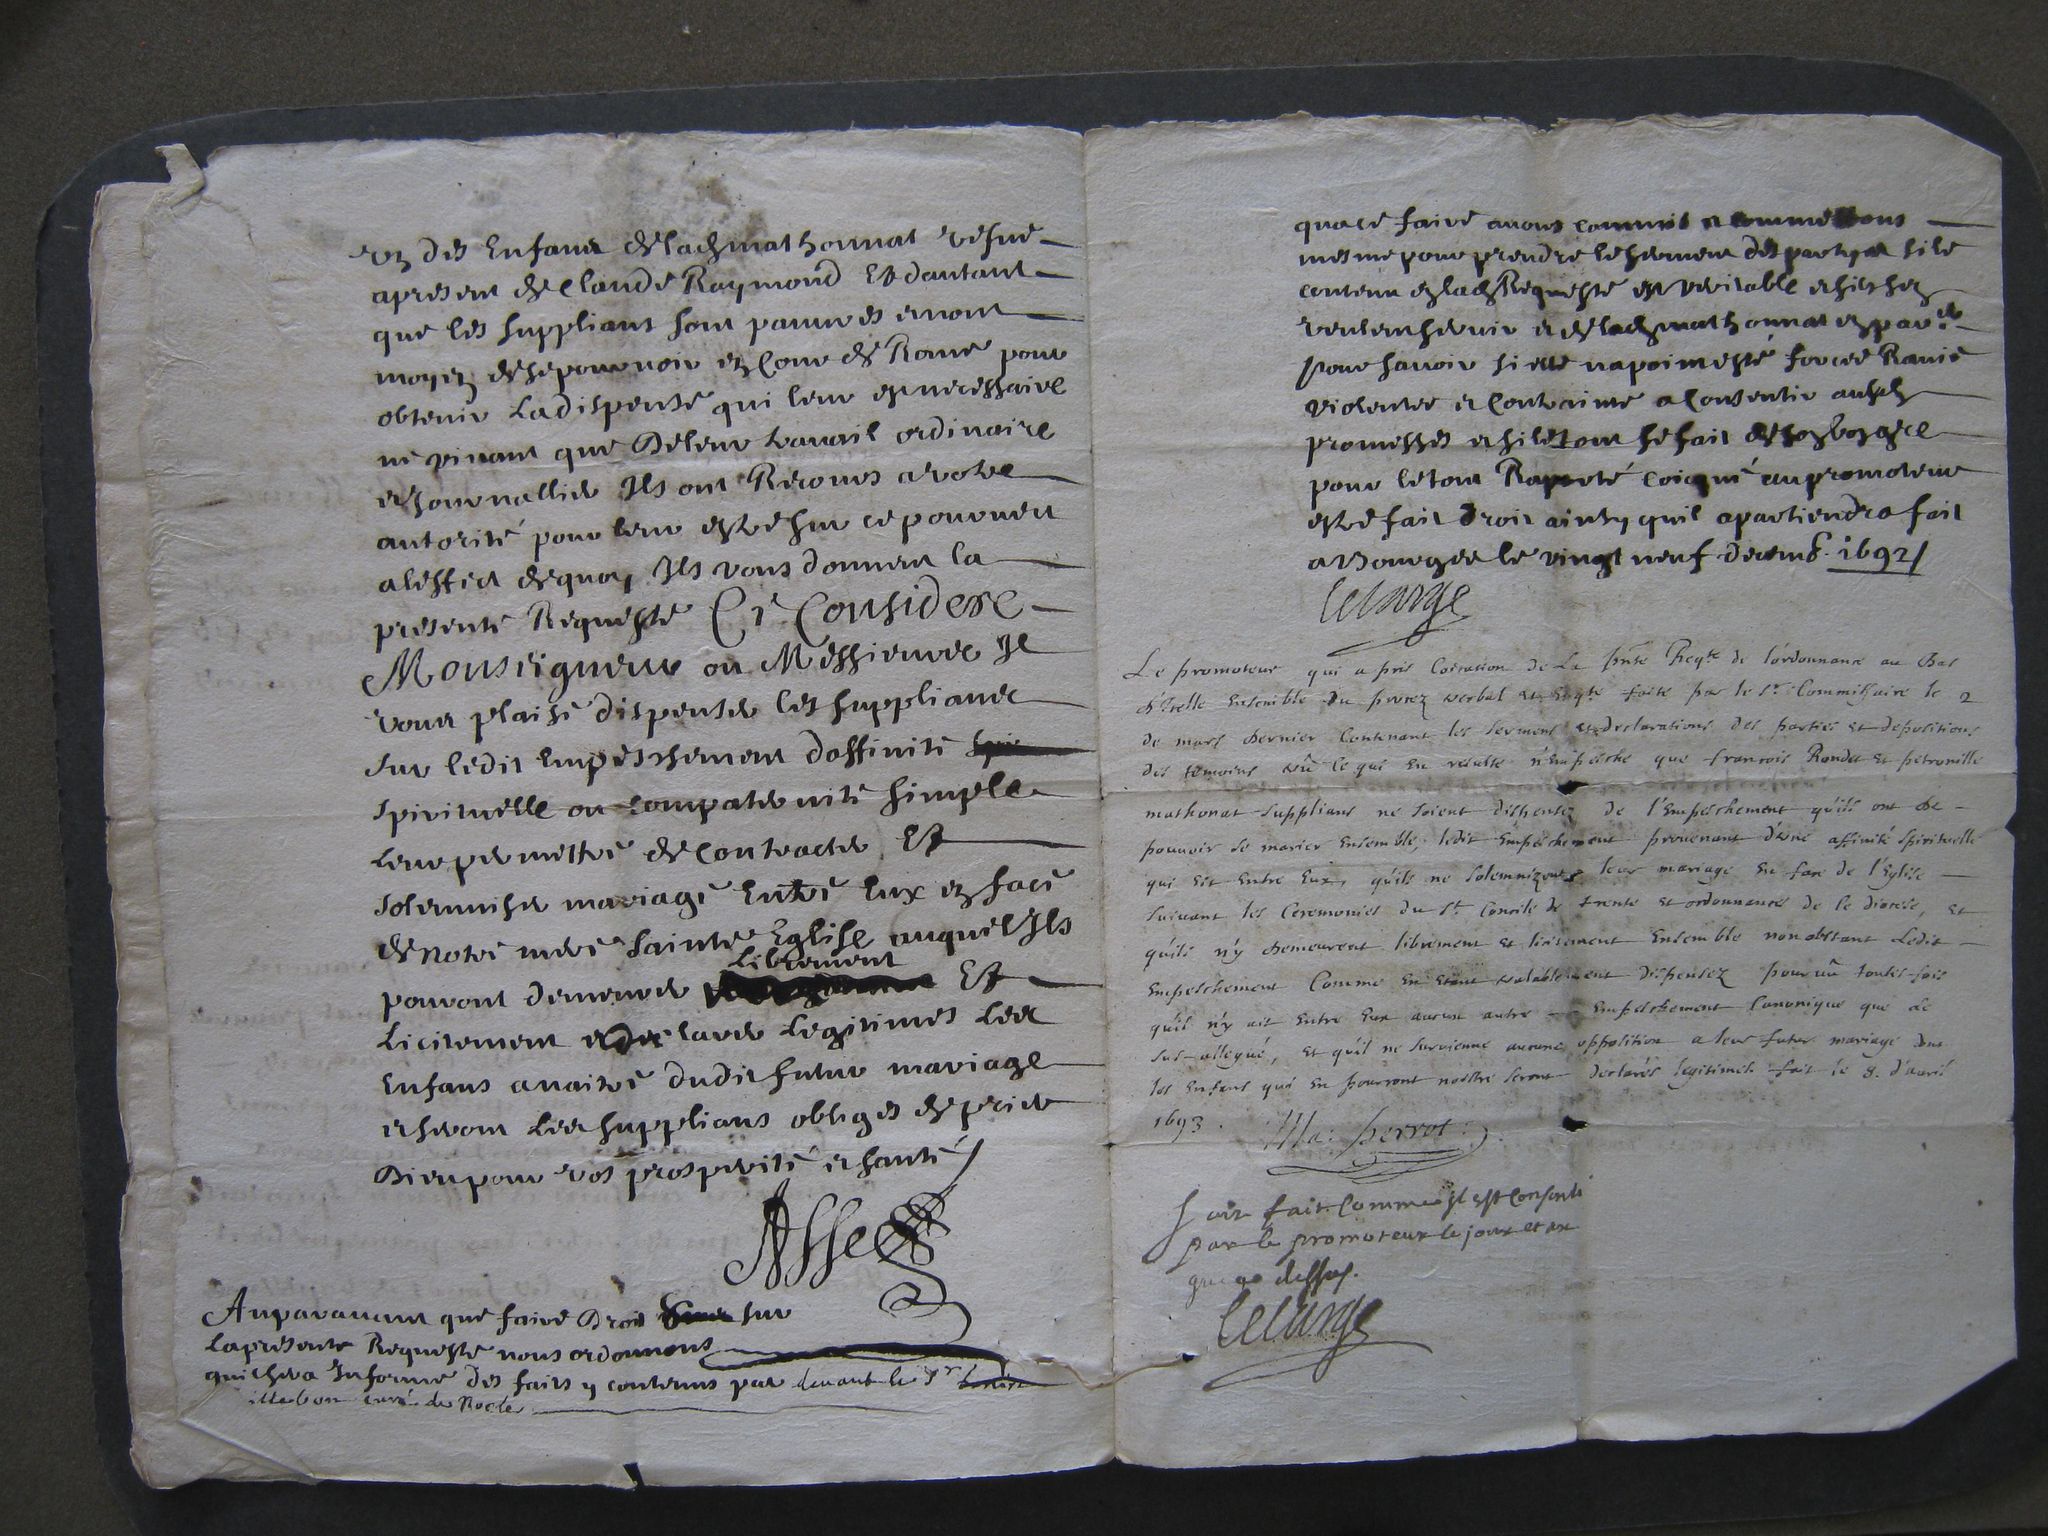 des Enfans de lad mathonnat vefue
apresent de Claude Raymond Et dautant
que les suppliant sont pauures et nont
moyen de se pourvoir en Cour de Rome pour
obtenir La dispense qui leur est necessaire
ne vivant que De leur travail ordinaire
et Journallier Ils ont Recours a votre
autorité pour leur estre sur ce pourveu
a leffect de quoy Ils vous donnent la
presente Requeste Ce Consideré
Monseigneur ou Messieurs Il
vous plaise dispenser les suppliants
sur ledit Empeschement daffinité
spirituelle ou compaternité simple
Leur permettre de Contracter Et
solemniser mariage Entre Eux en face
de notre mere sainte Eglise auquel Ils
Librement
pouront demeurer Et
Licitement et declarer Legitimes Les
Enfans a naistre dudit futur mariage
et seront Les supplians obligés de prier
Dieu pour vos prosperité et santé
Asse
Auparavant que faire Droit sur
La presente Requeste nous ordonnons
quil sera Informé des faits y contenus par devant le Sr
curé de
qua ce faire avons commis et commettons
mesme pour prendre le serment des partyes si le
contenu en lad Requeste est veritable et sils sen
veulent servir et de lad mathonnat en par.er
pour savoir si elle na point esté forcée Ravie
violentée et Contrainte a Consentir ausd
promesses et si le tout se fait de son bon gré
pour le tout Raporté coiqué au promoteur
estre fait droit ainsy quil apartiendra fait
a Bourges le vingt neuf decemb. 1692
Lelarge
Le promoteur qui a pris Coĩcation de La pñte Reqte de l'ordonnance au Bas
d'Icelle Ensemble du procez verbal et Enqte faite par le Sr. Commissaire le 2
de mars dernier Contenant les serments et declarations des parties et depositions
des temoins vû ce qui En resulte n'Empesche que francois Rondet et petronille
mathonat supplians ne soient dispensez de l'Empeschement qu'ils ont de
pouvoir se marier Ensemble, ledit Empeschement provenant d'une affinité spirituelle
qui est Entre Eux, qu'ils ne solemnizent leur mariage En face de l'Eglise
suivant les Ceremonies du St. Concile de trente et ordonnances de ce diocese, et
qu'ils n'y demeurent librement et licitement Ensemble nonobstant Ledit
Empeschement Comme En Etant valablement dispensez pourvû toutes fois
qu'il n'y ait Entre Eux aucun autre Empeschement Canonique que le
sus-allegué, et qu'il ne survienne aucune opposition a leur futur mariage dont
les Enfans qui En pourront naistre seront declarés legitimes fait le 8. d'avril
1693.
Ma: perrot
Soit fait Comme il est Consenti
par le promoteur le jour et an
que dessus.
Lelarge